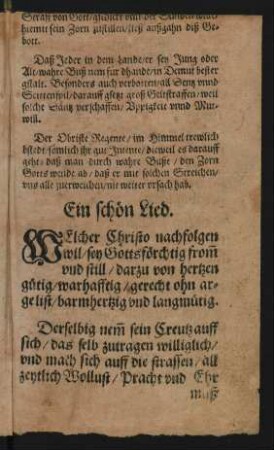 hiemit sein Zorn zustillen/ließ außgahn diß Ge-
bott.
Daß Jeder in dem lande/er sey Jung oder
Alt/wahre Buß nem für dhandt/in Demut bester
gstalt. Besonders auch verbotten/all Seytz vnnd
Seittenspil/darauff gsetzt groß Geltstraffen/weil
solche Säntz verschaffen/Vppigkeit vnnd Mut-
will.
Der Obriste Regente/im Himmel trewlich
bstedt sömlich ihr gut Intente/dieweil es darauff
geht/daß man durch wahre Busse/den Zorn
Gotts wendt ab/daß er mit solchen Streichen/
vns alle zuerweichen/nit weiter vrsach hab.
Ein schön Lied.
WElcher Christo nachfolgen
wil/sey Gottsförchtig from̃
vnd still/darzu von hertzen
gütig/warhafftig/gerecht ohn ar-
ge list/barmhertzig vnd langmütig.
Derselbig nem̃ sein Creutz auff
sich/das selb zutragen williglich/
vnd mach sich auff die strassen/all
zeytlich Wollust/Pracht vnd Ehr
muß